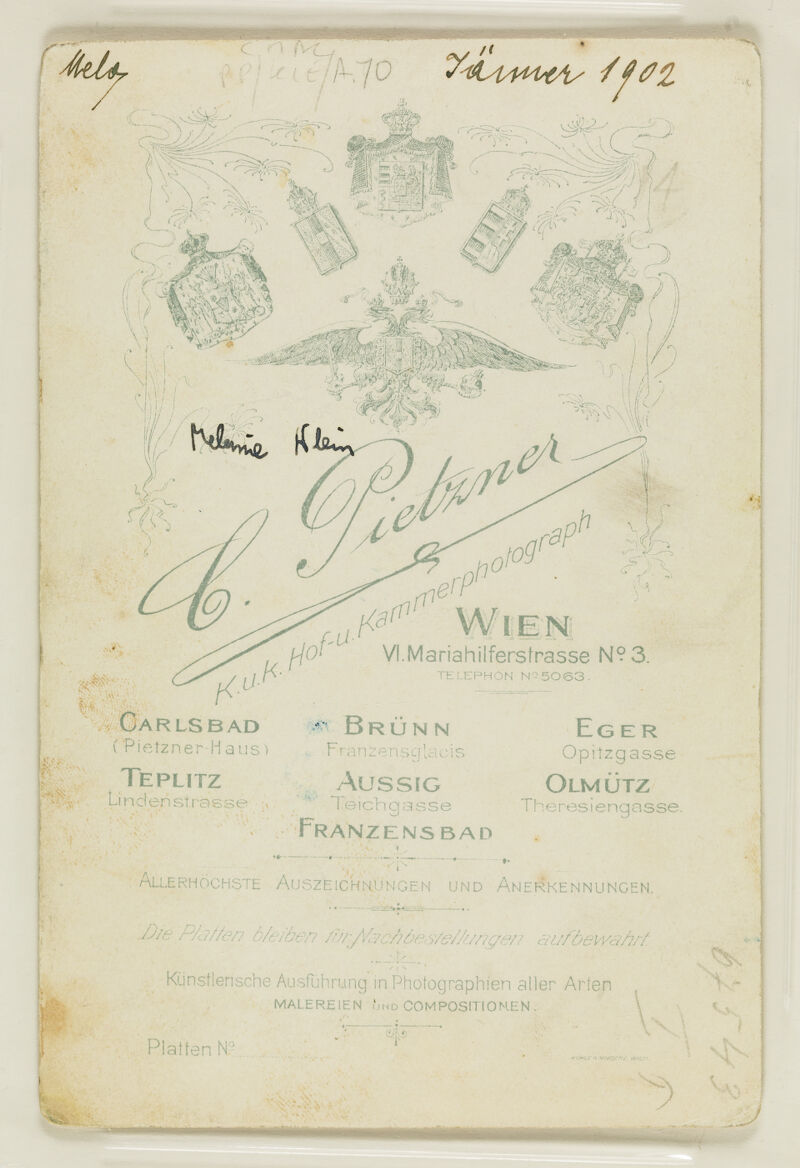 Mela
PP/KLE/A.70
Jänner 1902
4
Melanie Klein
C. Pietzner
K.u.k. Hof-u. Kammerphotograph
WIEN
VI. Mariahilferstrasse No 3.
TELEPHON No 5063.
CARLSBAD BRÜNN EGER
(Pietzner-Haus) Franzensglacis Opitzgasse
TEPLITZ AUSSIG OLMÜTZ
Lindenstrasse Teichgasse Theresiengasse.
FRANZENSBAD
ALLERHÖCHSTE AUSZEICHNUNGEN UND ANERKENNUNGEN.
Die Platten bleiben für Nachbestellungen aufbewahrt
Künstlerische Ausführung in Photographien aller Arten
MALEREIEN UND COMPOSITIONEN.
Platten No